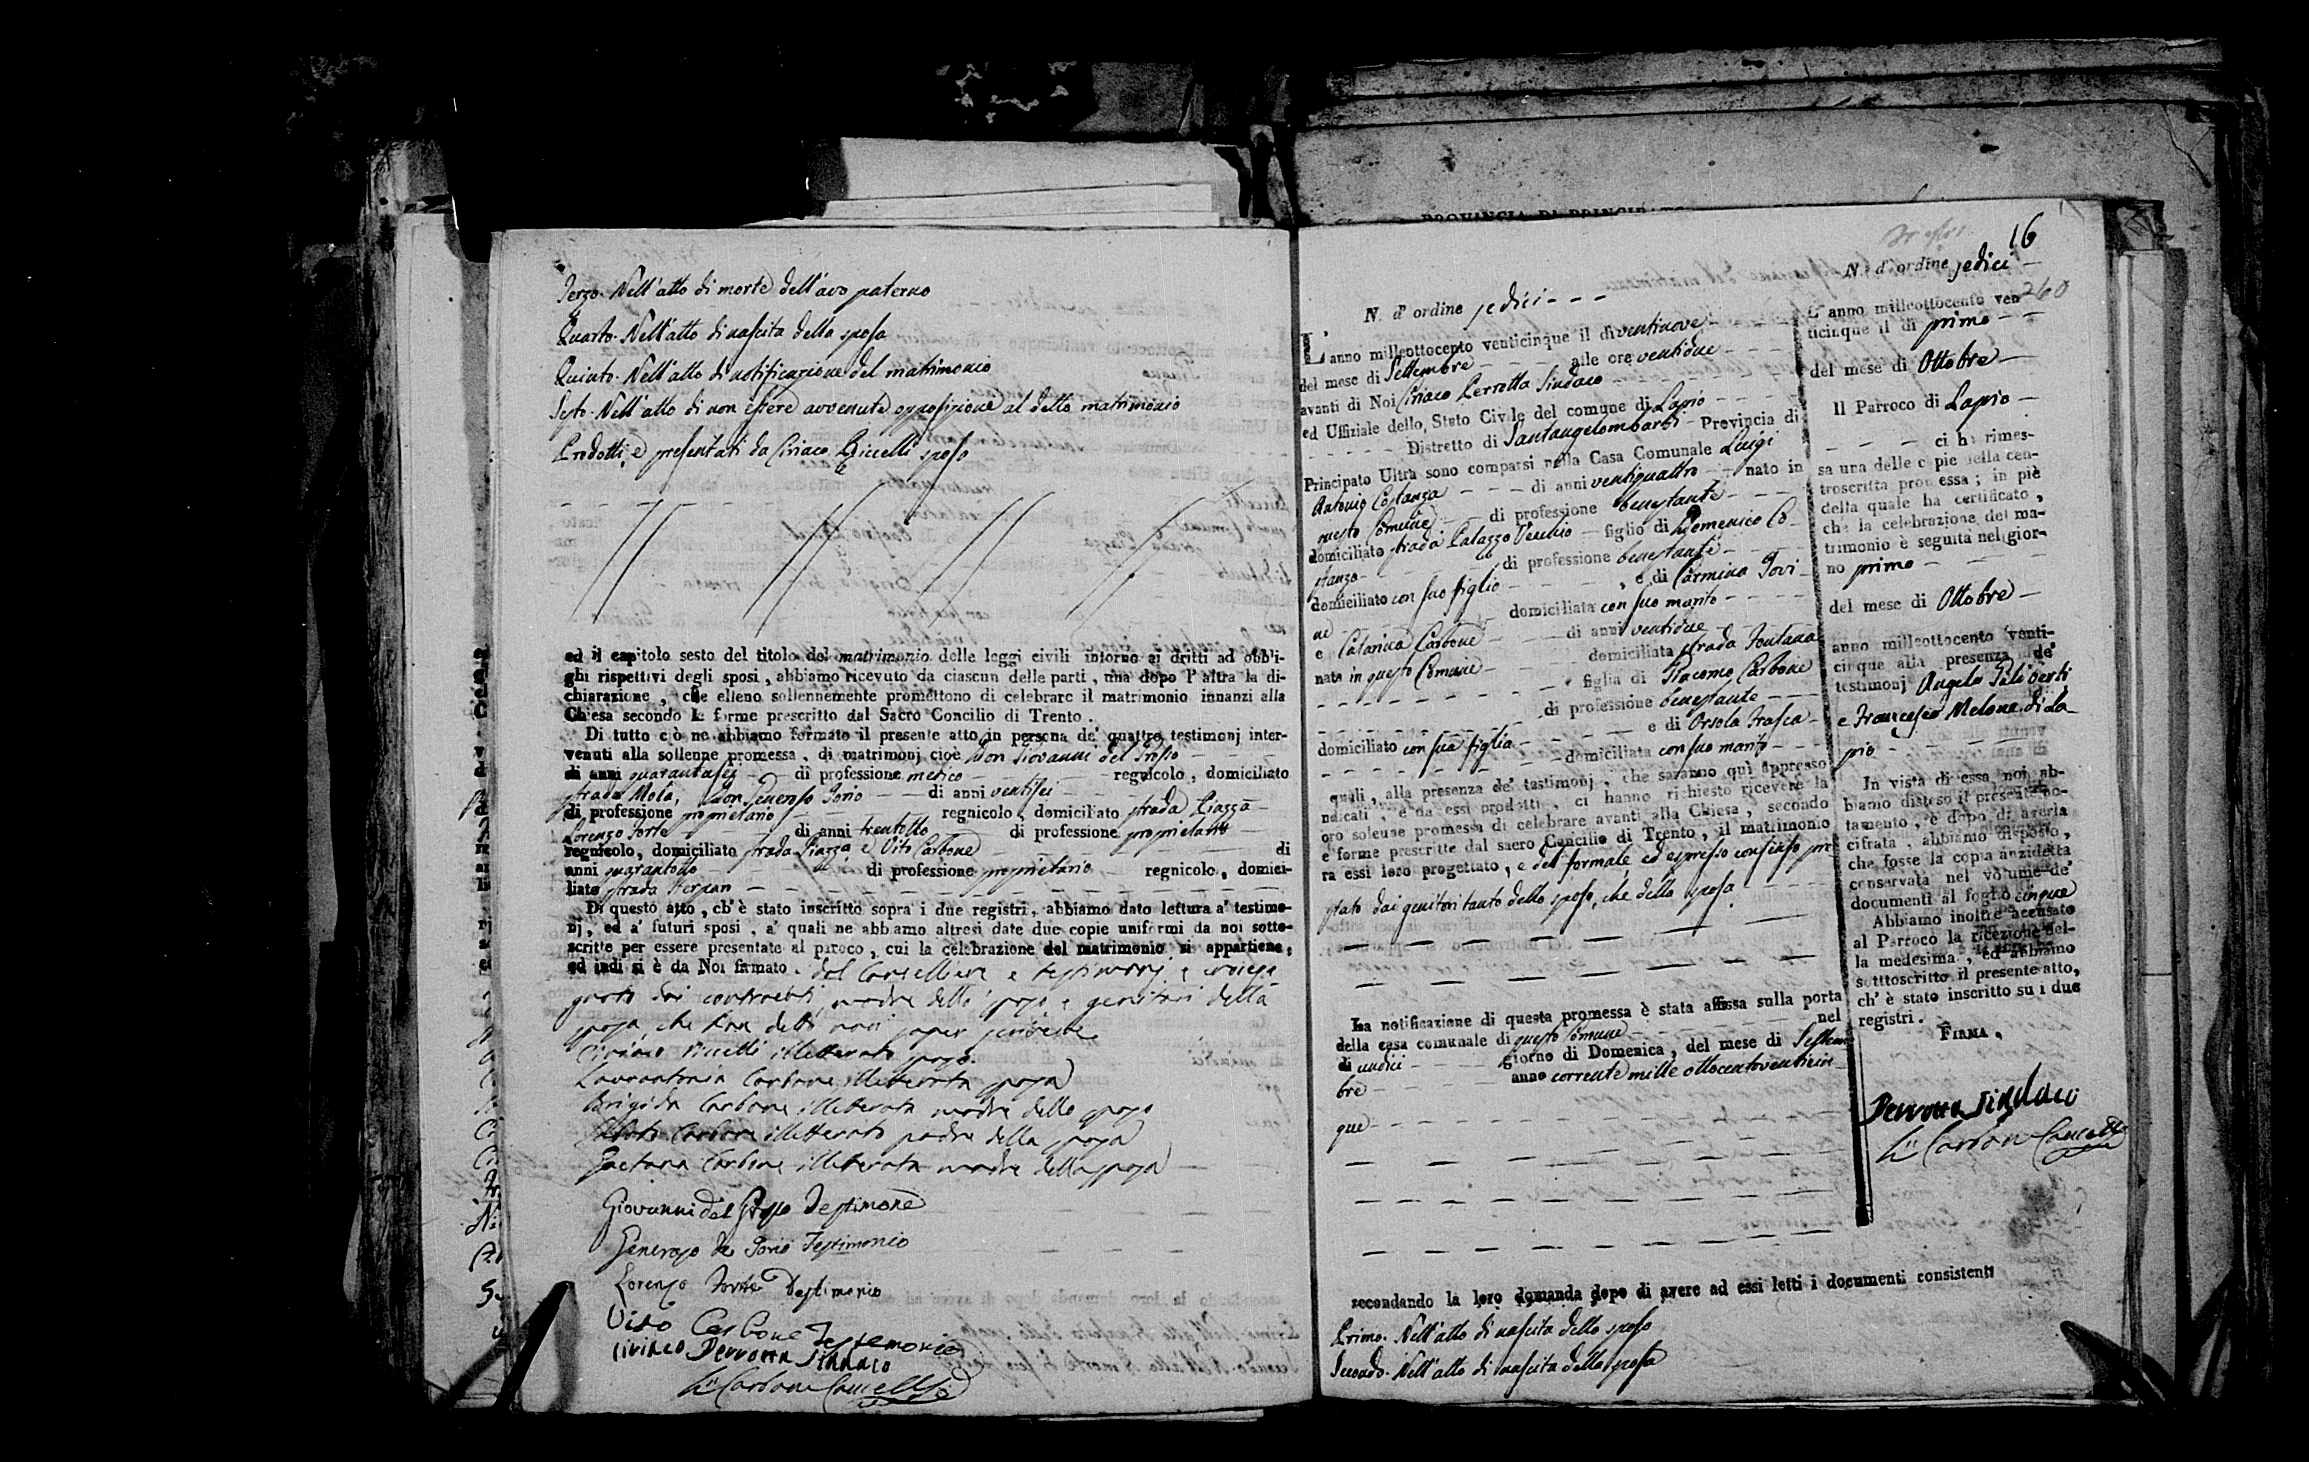 Terzo. Nell'atto di morte dell'avo paterno
Quarto. Nell'atto di nascita della sposa
Quinto. Nell'atto di notificazione del matrimonio
Sesto. Nell'atto di non essere avvenuta opposizione al detto matrimonio
Prodotti, e presentati da Ciriaco Riccelli sposo
ed il capitolo sesto del titolo del matrimonio delle leggi civili intorno ai dritti ad obb'i-
ghi rispettivi degli sposi, abbiamo ricevuto da ciascun delle parti, una dopo l'altra la di-
chiarazione, che elleno sollennemente promettono di celebrare il matrimonio innanzi alla
Chiesa secondo le forme prescritto dal Sacro Concilio di Trento.
Di tutto ciò ne abbiamo formato il presente atto in persona de' quattro testimonj inter-
venuti alla sollenne promessa, di matrimonj cioè Don Giovanni del Grosso
di anni quarantasei di professione medico regnicolo, domiciliato
strada Mola, Don Generoso Iorio di anni ventisei
di professione proprietario regnicolo, domiciliato strada Piazza
Lorenzo Forte di anni trentotto di professione proprietario
regnicolo, domiciliato strada Piazza e Vito Carbone di
anni quarantotto di professione proprietario regnicolo, domici-
liato strada
Di questo atto, ch'è stato inscritto sopra i due registri, abbiamo dato lettura a' testimo-
nj, ed a' futuri sposi, a' quali ne abbiamo altresì date due copie uniformi da noi sotto-
scritte per essere presentate al paroco, cui la celebrazione del matrimonio si appartiene,
ed indi si è da Noi firmato. dal Cancelliere e testimonj e
dai contraenti, madre dello sposo e genitori della
sposa, che han detto non saper scrivere
Ciriaco Riccelli illetterato sposo
Lauraantonia Carbone illetterata sposa
Brigida Carbone illetterata madre dello sposo
Carbone illetterato padre della sposa
Gaetana Carbone illetterata madre della sposa
Giovanni del Grosso Testimone
Generoso de Iorio Testimonio
Lorenzo Forte Testimonio
Vito Carbone Testemonio
Ciriaco Perrotta Sindaco
Carbone Cancelle
16
N. d'ordine sedici
260
N. d'ordine sedici
L'anno milleottocento venticinque il di ventinove
del mese di Settembre alle ore ventidue
avanti di Noi Ciriaco Perrotta Sindaco
ed Uffiziale dello Stato Civile del comune di Lapio
Distretto di Santangelombardi Provincia di
Principato Ultra sono comparsi nella Casa Comunale Luigi
Antonio Costanza di anni ventiquattro nato in
questo Comune di professione benestante
domiciliato strada Palazzo Vecchio figlio di Domenico Co-
stanza di professione benestante
domiciliato con suo figlio, e di Carmina Iovi-
ne domiciliata con suo marito
e Catarina Carbone di anni ventidue
nata in questo Comune domiciliata strada Fontana
figlia di Giacomo Carbone
di professione benestante
domiciliato con sua figlia e di Orsola Trasca
domiciliata con suo marito
quali, alla presenza de' testimonj, che saranno quì appresso
ndicati, e da essi prodotti, ci hanno richiesto ricevere la
oro solenne promessa di celebrare avanti alla Chiesa, secondo
e forme prescritte dal sacro Concilio di Trento, il matrimonio
ra essi loro progettato, e del formale, ed espresso consenso pre-
stato dai genitori tanto dello sposo, che della sposa
La notificazione di questa promessa è stata affissa sulla porta
della casa comunale di questo Comune nel
di undici giorno di Domenica, del mese di Settem-
bre anno corrente mille ottocentoventicin-
que
secondando la loro domanda dopo di avere ad essi letti i documenti consistenti
Primo. Nell'atto di nascita dello sposo
Secondo. Nell'atto di nascita della sposa
L'anno milleottocento ven-
ticinque il di primo
del mese di Ottobre
Il Parroco di Lapio
ci ha rimes-
sa una delle copie della con-
troscritta promessa; in piè
della quale ha certificato,
che la celebrazione del ma-
trimonio è seguita nel gior-
no primo
del mese di Ottobre
anno milleottocento venti-
cinque alla presenza de'
testimonj Angelo Galiberti
e Francesco Melone di La-
pio
In vista di essa noi ab-
biamo disteso il presente no-
tamento, e dopo di averla
cifrata, abbiamo disposto,
che fosse la copia anzidetta
conservata nel volume de'
documenti al foglio cinque
Abbiamo inoltre accusato
al Parroco la ricezione del-
la medesima, ed abbiamo
sotttoscritto il presente atto,
ch'è stato inscritto su i due
registri.
FIRMA.
Perrotta Sindaco
Carbone Cancelle